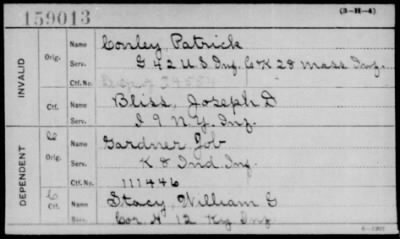 159013
(3-H-4)
INVALID
Orig.
Name Conley Patrick
Serv. G 42 U S Inf. G & K 28 Mass Inf.
Ctf. No.
Ctf.
Name Bliss, Joseph D
Serv. I 9 N.Y. Inf.
DEPENDENT
C
Orig.
Name Gardner Job
Serv. K 8 Ind Inf.
Ctf. No. 111446
C
Ctf.
Name Stacy William G
Serv. Cor. H 12 Ky Inf